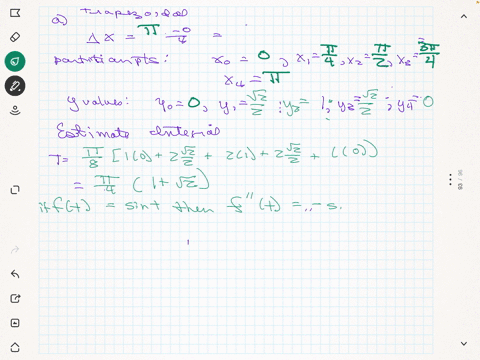 a) trapezoidal
Δx = π-0/4 =
partition pts: x₀ = 0, x₁ = π/4, x₂ = π/2, x₃ = 3π/4
x₄ = π
y values: y₀ = 0, y₁ = √2/2; y₂ = 1; y₃ = √2/2; y₄ = 0
Estimate Interal
T = π/8 [1(0) + 2 √2/2 + 2(1) + 2 √2/2 + 1(0)]
= π/4 (1 + √2)
if f(t) = sin t then f''(t) = - s